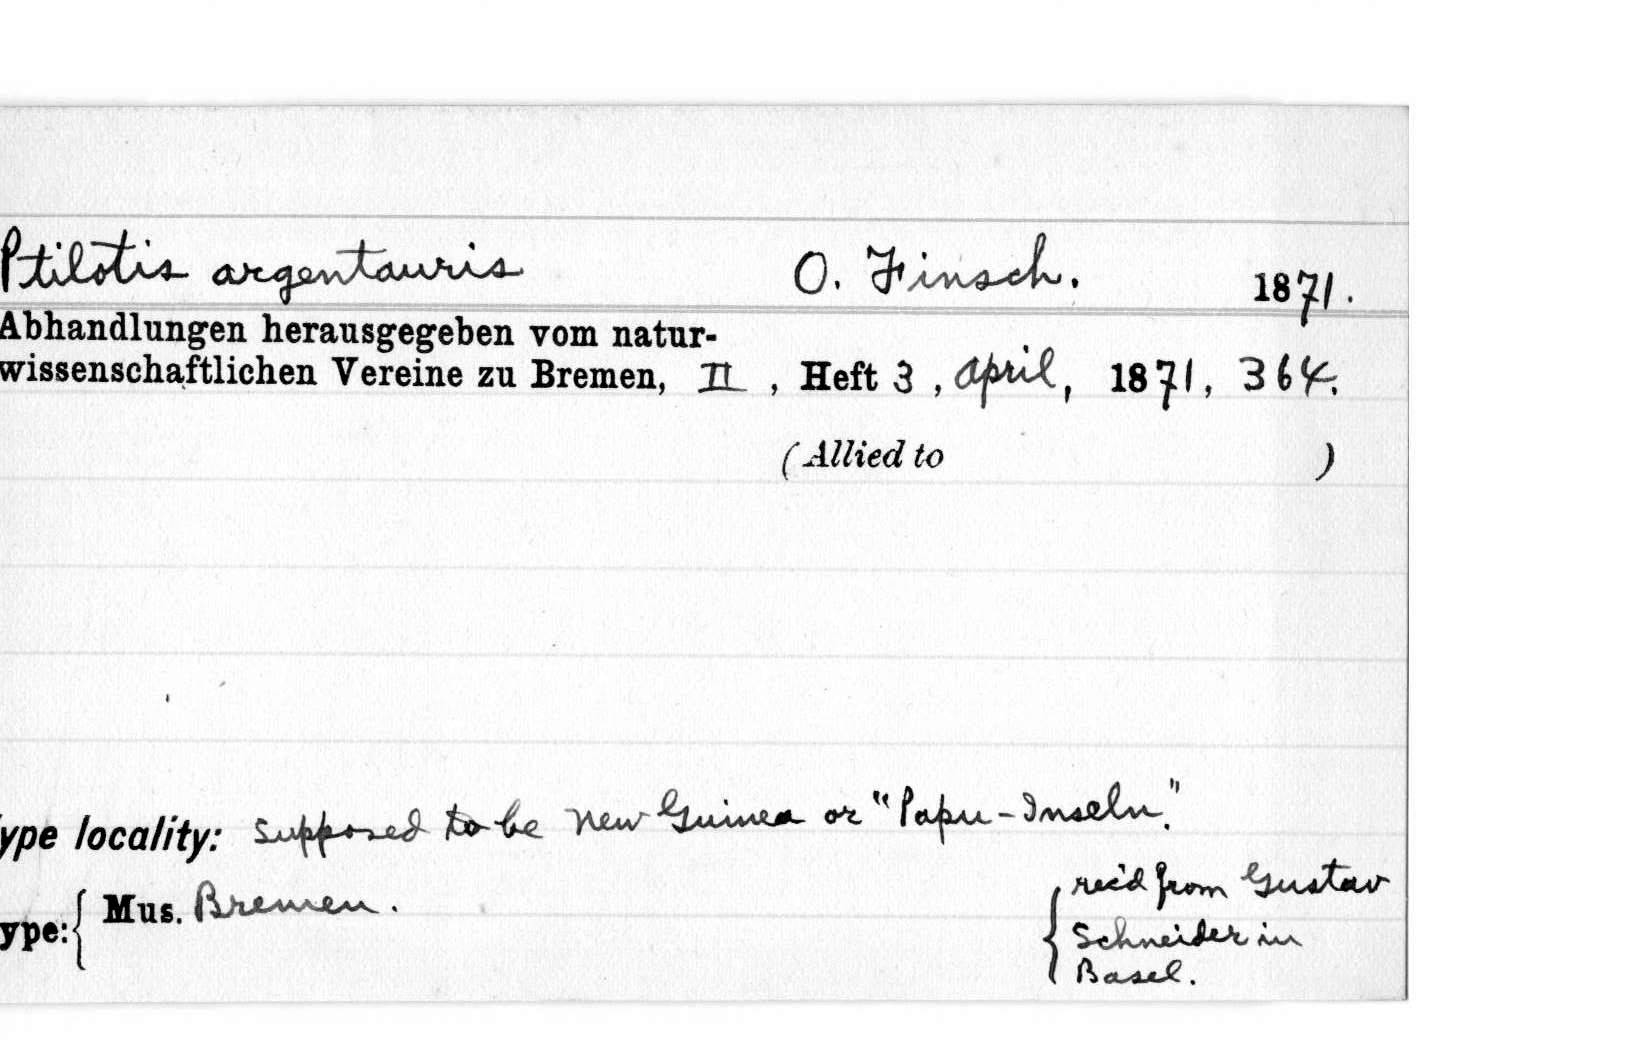 Ptilotis argentauris O. Finsch. 1871.
Abhandlungen herausgegeben vom natur-
wissenschaftlichen Vereine zu Bremen, II, Heft 3, April, 1871, 364.
(Allied to )
ype locality: supposed to be New Guinea or "Papu-Inseln".
ype: { Mus. Bremen. { rec'd from Gustav
Schneider in
Basel.